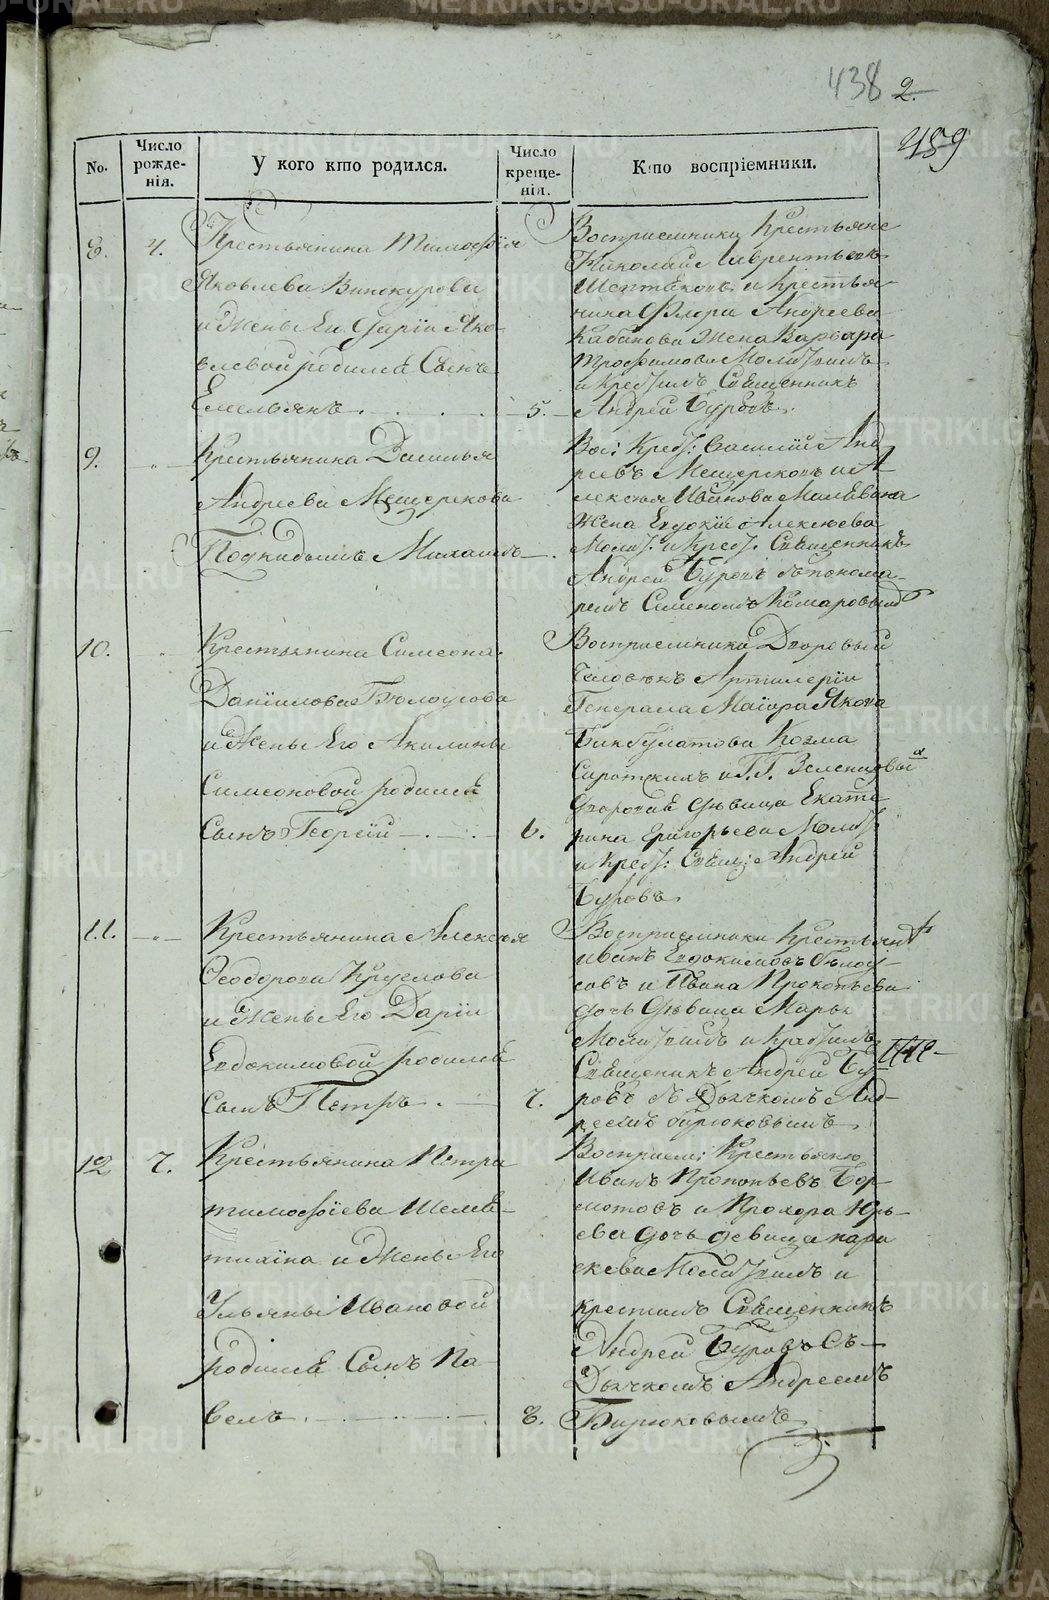 438 2.
459
No.
Число рожденія.
У кого кто родился.
Число крещенія.
Кто воспріемники.
8. 4.
Крестьянина Тимоѳѣя
Яковлева Винокурова
и Жены Ея Даріи Яко-
влевой родился Сынъ
Емельянъ 5.
Восприемники Крестьяне
Николай Лаврентьевъ
и Крестья-
нина Флора Андреева
Кабанова Жена Варвара
Трофимова Молитвилъ
и Крестилъ Священникъ
Андрей Буровъ.
9.
Крестьянина Василья
Андреева Мещерекова
Подкидышъ Михаилъ
Вос: Крес: Василий Анд
реевъ Мещерековъ и А
лексея Иванова
Жена Евдокия Алексеева
Молит: и Крест: Священникъ
Андрей Буровъ съ понома-
ремъ Симеономъ Комаровымъ
10.
Крестьянина Симеона
Даніилова Бѣлоусова
и Жены Его Акилины
Симеоновой родился
Сынъ Георгій 6.
Восприемники Дворовый
Человѣкъ Артилеріи
Генерала Маіора Якова
Бикбулатова Козма
Сироткинъ и Г.Г. Зеленцовы
дворовая дѣвица Екате
рина Григорьева Молит
и Крест: Свящ: Андрей
Буровъ.
11.
Крестьянина Алексѣя
Ѳеодорова Круглова
и Жены Его Даріи
Евдокимовой родился
Сынъ Петръ 7.
Восприемники Крестьян
Иванъ Евдокимовъ Бѣлоу-
совъ и Ивана Прокопьева
дочь дѣвица Марья
Молитвилъ и Крестилъ
Священникъ Андрей Бу-
ровъ съ Дьячкомъ Анд-
реемъ Бирюковымъ.
12 7.
Крестьянина Петра
Тимоѳѣева Шелев-
тихина и Жены Его
Ульяны Ивановой
родился Сынъ Па-
велъ 8.
Восприем: Крестьяне
Иванъ Прокопьевъ Бор-
мотовъ и Прохора Юрь-
ева дочь девица пара
скева Молитвилъ и
крестилъ Священникъ
Андрей Буровъ Съ
Дьячкомъ Андреемъ
Бирюковымъ
METRIKI.GASO-URAL.RU